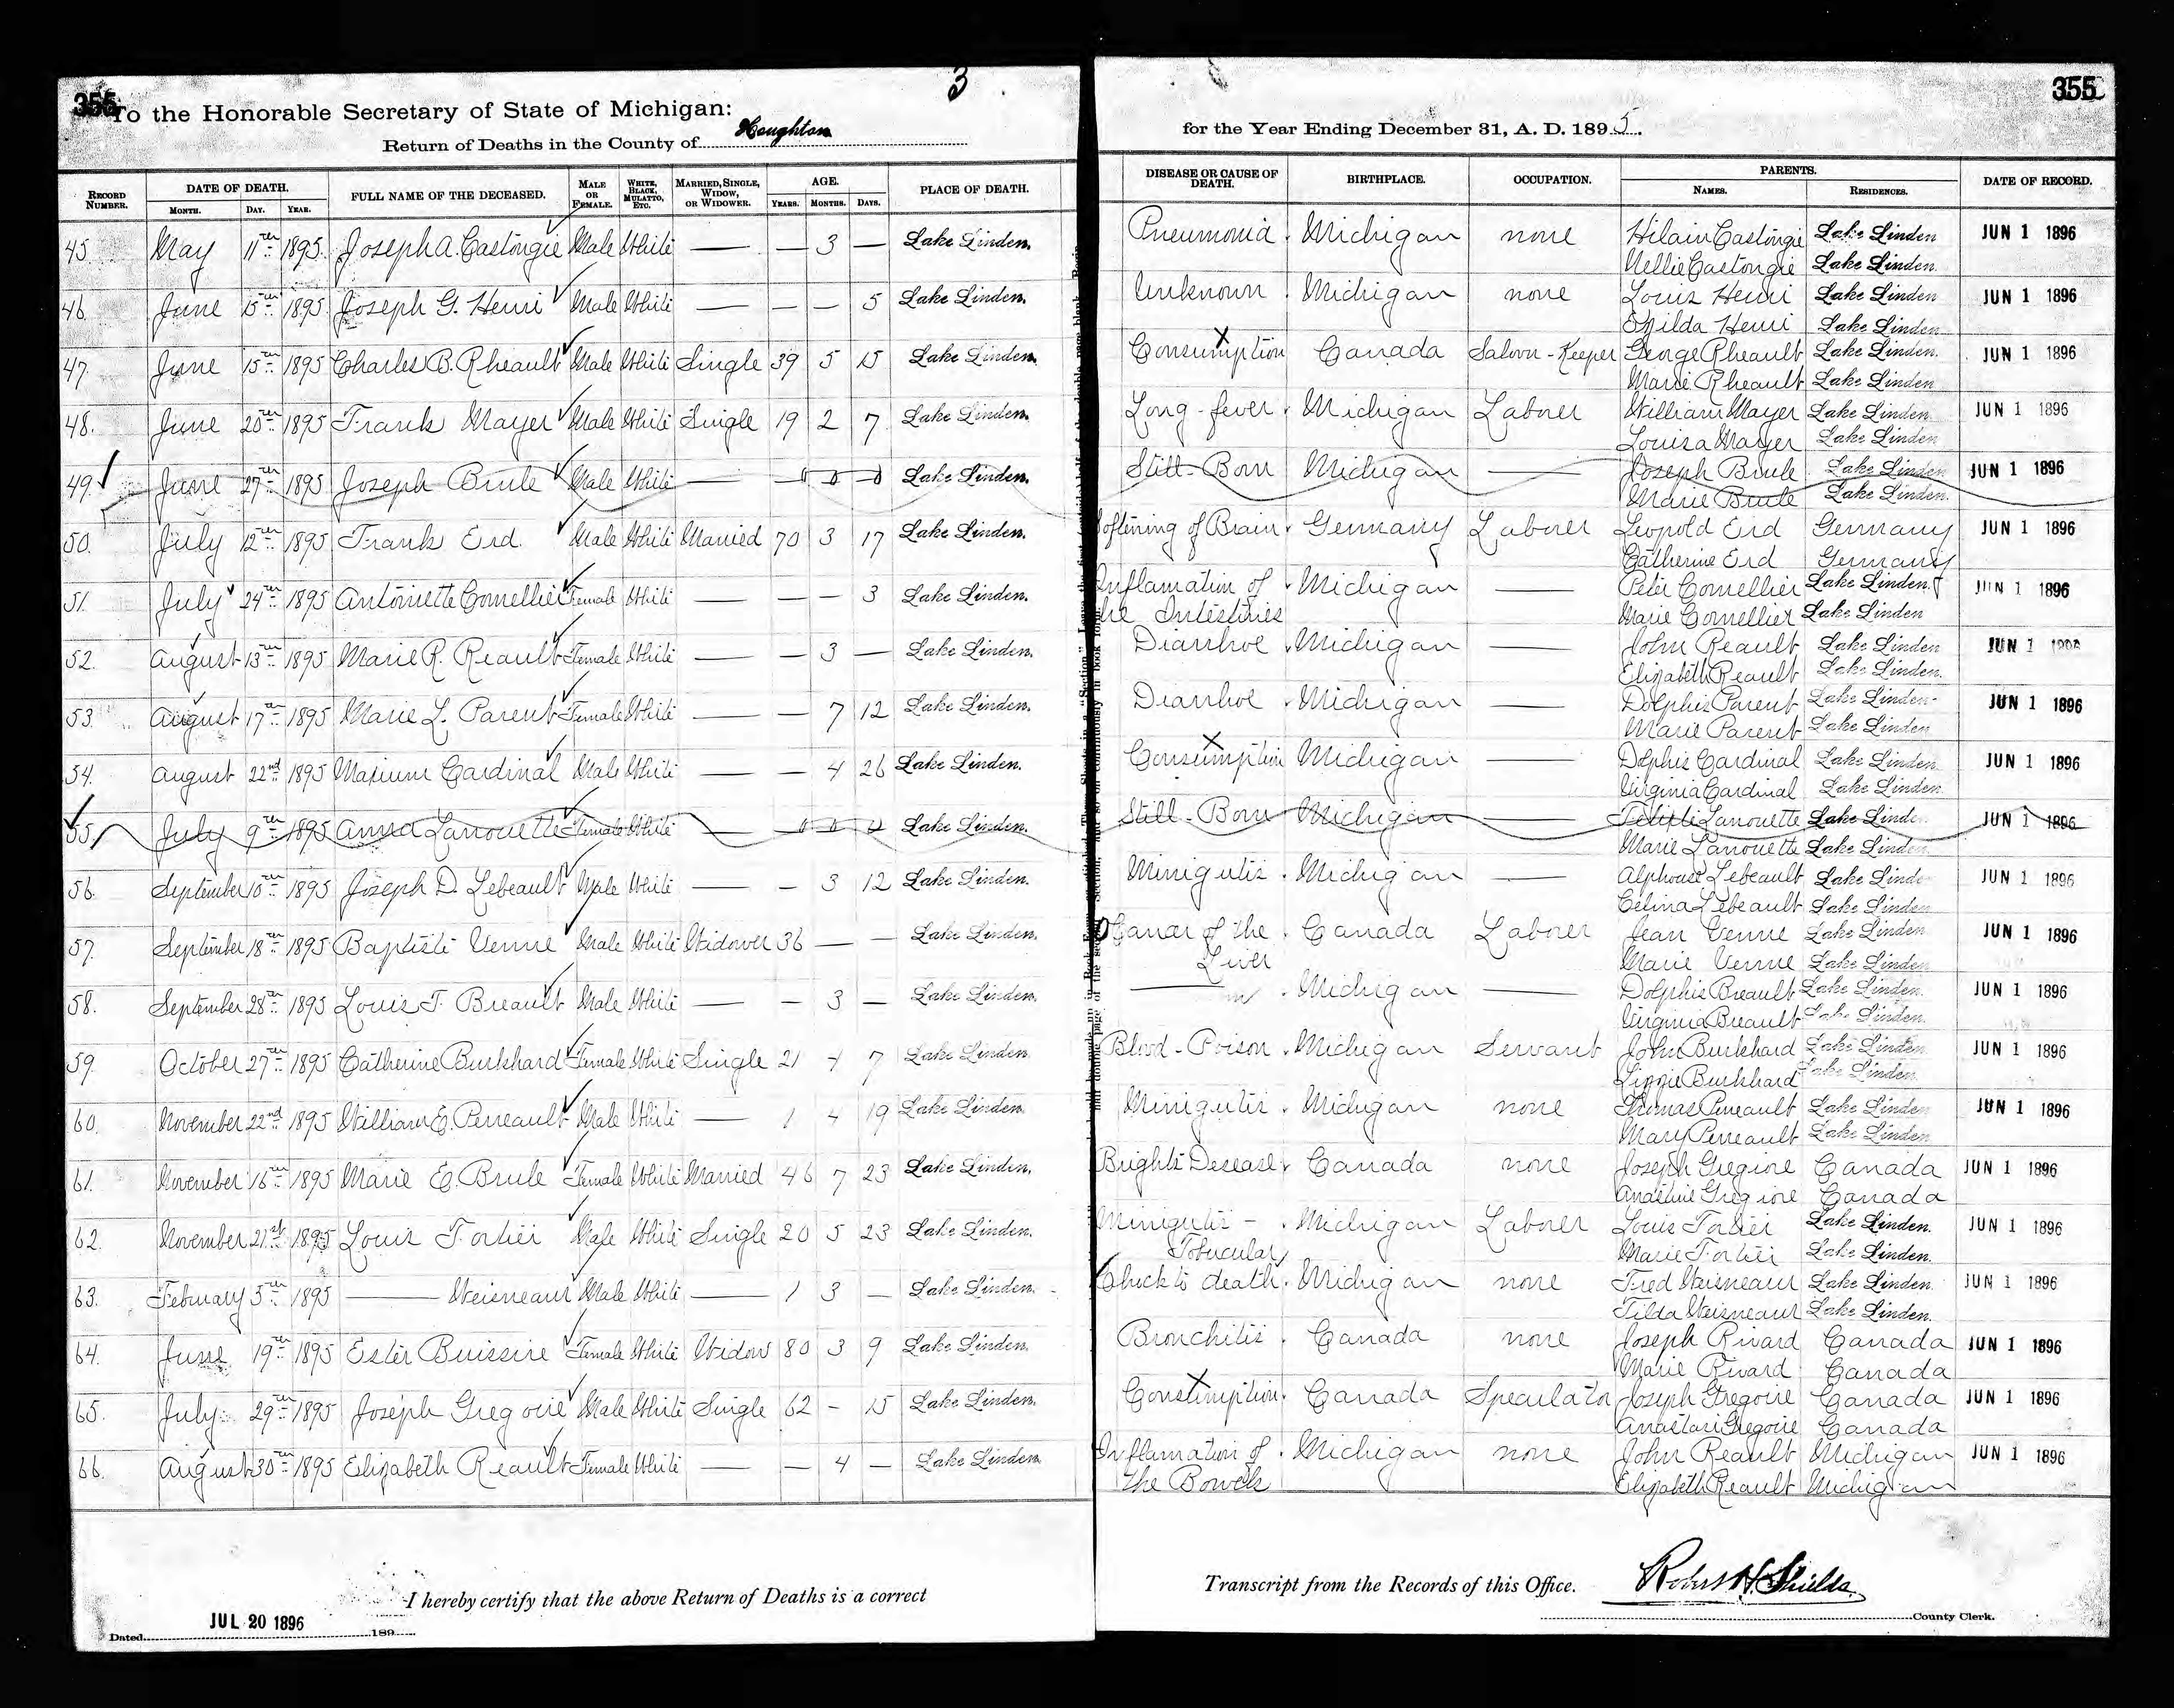 355
3
355
To the Honorable Secretary of State of Michigan:
Return of Deaths in the County of Houghton
for the Year Ending December 31, A. D. 1895.
RECORD NUMBER. DATE OF DEATH. MONTH. DAY. YEAR. FULL NAME OF THE DECEASED. MALE OR FEMALE. WHITE, BLACK, MULATTO, ETC. MARRIED, SINGLE, WIDOW, OR WIDOWER. AGE. YEARS. MONTHS. DAYS. PLACE OF DEATH. DISEASE OR CAUSE OF DEATH. BIRTHPLACE. OCCUPATION. PARENTS. NAMES. RESIDENCES. DATE OF RECORD.
45. May 11th 1895. Joseph A. Castongie Male White — — 3 — Lake Linden. Pneumonia. Michigan none Hilair Castongie Lake Linden JUN 1 1896
Nellie Castongie Lake Linden.
46. June 15th 1895 Joseph G. Henri Male White — — — 5 Lake Linden. Unknown. Michigan none Louis Henri Lake Linden JUN 1 1896
Exilda Henri Lake Linden
47. June 15th 1895 Charles B. Rheault Male White Single 39 5 15 Lake Linden. Consumption Canada Saloon-Keeper George Rheault Lake Linden. JUN 1 1896
Marie Rheault Lake Linden
48. June 20th 1895 Frank Mayer Male White Single 19 2 7 Lake Linden. Long-fever. Michigan Laborer William Mayer Lake Linden. JUN 1 1896
Louisa Mayer Lake Linden
49. June 27th 1895 Joseph Brule Male White — 0 0 0 Lake Linden. Still-Born Michigan — Joseph Brule Lake Linden JUN 1 1896
Marie Brule Lake Linden.
50. July 12th 1895 Frank Erd. Male White Married 70 3 17 Lake Linden. Softening of Brain. Germany Laborer Leopold Erd Germany JUN 1 1896
Catherine Erd Germany
51. July 24th 1895 Antoniette Cornellier Female White — — — 3 Lake Linden. Inflamation of Michigan — Peter Cornellier Lake Linden. JUN 1 1896
the Intestines Marie Cornellier Lake Linden
52. August 13th 1895 Marie R. Reault Female White — — 3 — Lake Linden. Diarrhoe. Michigan — John Reault Lake Linden JUN 1 1896
Elizabeth Reault Lake Linden.
53. August 17th 1895 Marie L. Parent Female White — — 7 12 Lake Linden. Diarrhoe. Michigan — Dolphis Parent Lake Linden JUN 1 1896
Marie Parent Lake Linden
54. August 22nd 1895 Maxium Cardinal Male White — — 4 26 Lake Linden. Consumption Michigan — Dolphis Cardinal Lake Linden JUN 1 1896
Virginia Cardinal Lake Linden.
55. July 9th 1895 Anna Larrouette Female White — 0 0 0 Lake Linden. Still-Born Michigan — Larrouette Lake Linden JUN 1 1896
Marie Larrouette Lake Linden
56. September 10th 1895 Joseph D. Lebeault Male White — — 3 12 Lake Linden. Minigutis. Michigan — Alphonse Lebeault Lake Linden JUN 1 1896
Celina Lebeault Lake Linden
57. September 18th 1895 Baptiste Venne Male White Widower 36 — — Lake Linden. Cancer of the Canada Laborer Jean Venne Lake Linden JUN 1 1896
Liver Marie Venne Lake Linden
58. September 28th 1895 Louis T. Breault Male White — — 3 — Lake Linden. — Michigan — Dolphis Breault Lake Linden. JUN 1 1896
Virginia Breault Lake Linden.
59. October 27th 1895 Catherine Burkhard Female White Single 21 4 7 Lake Linden Blood-Poison. Michigan Servant John Burkhard Lake Linden JUN 1 1896
Lizzie Burkhard Lake Linden.
60. November 22nd 1895 William E. Perreault Male White — 1 4 19 Lake Linden. Minigutis. Michigan none Thomas Perreault Lake Linden JUN 1 1896
Mary Perreault Lake Linden
61. November 16th 1895 Marie E. Brule Female White Married 46 7 23 Lake Linden. Brights Desease. Canada none Joseph Gregiore Canada JUN 1 1896
Gregiore Canada
62. November 21st 1895 Louis Fortier Male White Single 20 5 23 Lake Linden. Minigutis — Michigan Laborer Louis Fortier Lake Linden. JUN 1 1896
Tobucular Marie Fortier Lake Linden.
63. February 5th 1895 — Weisneaur Male White — 1 3 — Lake Linden. Chock to death. Michigan none Fred Weisneaur Lake Linden. JUN 1 1896
Tilda Weisneaur Lake Linden.
64. June 19th 1895 Ester Buissire Female White Widow 80 3 9 Lake Linden. Bronchitis. Canada none Joseph Rivard Canada JUN 1 1896
Marie Rivard Canada
65. July 29th 1895 Joseph Gregoire Male White Single 62 - 15 Lake Linden. Consumption. Canada Speculator Joseph Gregoire Canada JUN 1 1896
Anastasi Gregoire Canada
66. August 30th 1895 Elizabeth Reault Female White — — 4 — Lake Linden. Inflamation of Michigan none John Reault Michigan JUN 1 1896
the Bowels Elizabeth Reault Michigan
I hereby certify that the above Return of Deaths is a correct
Transcript from the Records of this Office. Robert H. Shields
County Clerk.
Dated JUL 20 1896 189